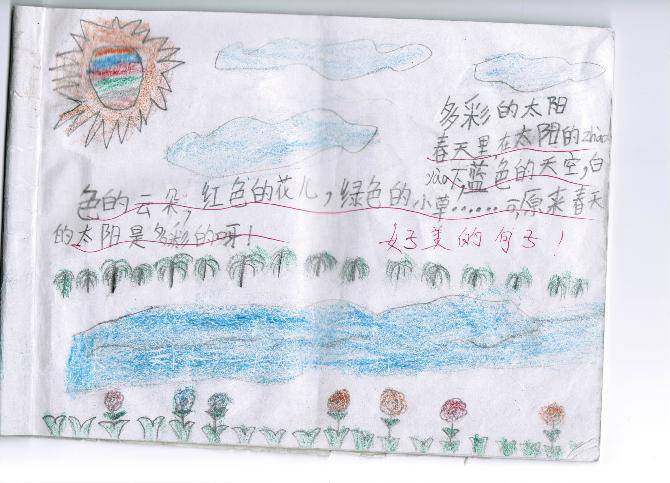 多彩的太阳
春天里,在太阳的zhào
yào下,蓝色的天空,白
色的云朵,红色的花儿,绿色的小草……,原来春天
的太阳是多彩的呀!
好美的句子!